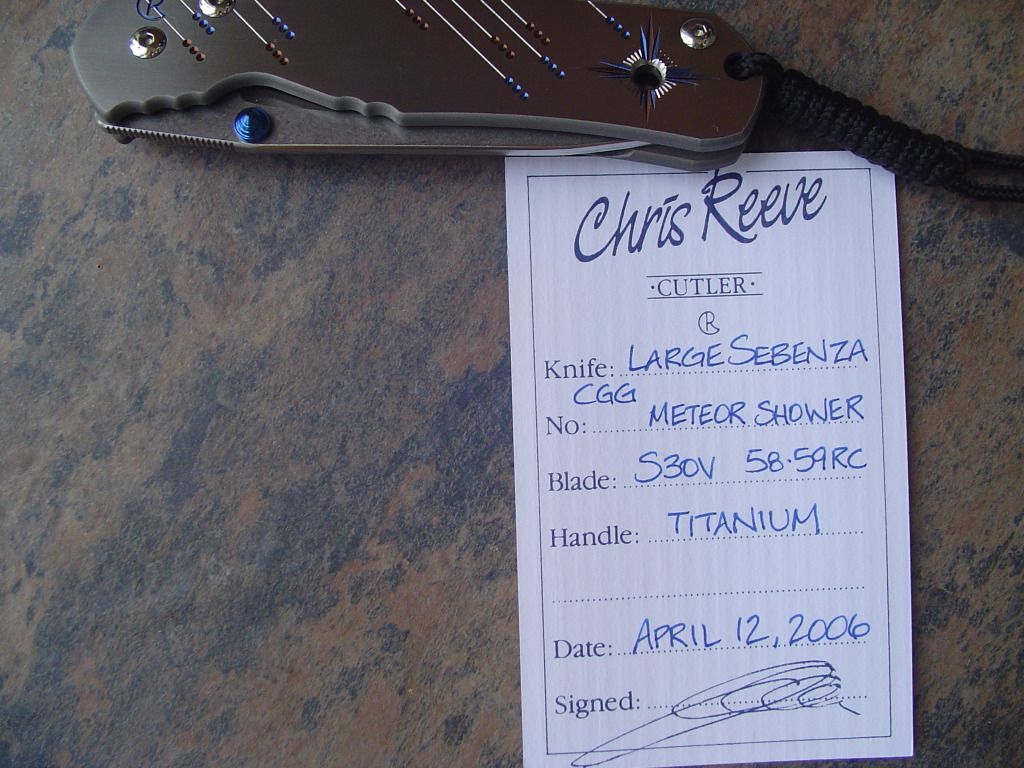 Chris Reeve
·CUTLER·
R
Knife: LARGE SEBENZA
CGG
No: METEOR SHOWER
Blade: S30V 58·59RC
Handle: TITANIUM
Date: APRIL 12, 2006
Signed: